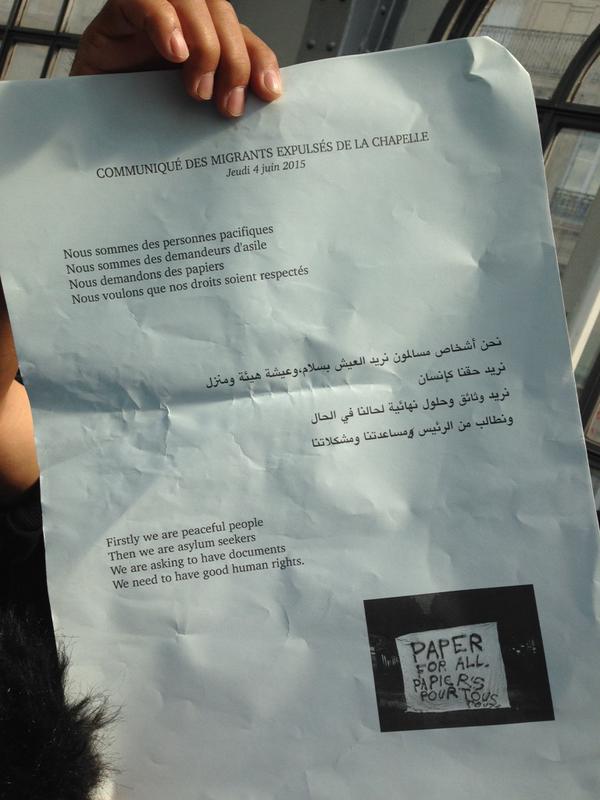 COMMUNIQUÉ DES MIGRANTS EXPULSÉS DE LA CHAPELLE
Jeudi 4 juin 2015
Nous sommes des personnes pacifiques
Nous sommes des demandeurs d'asile
Nous demandons des papiers
Nous voulons que nos droits soient respectés
نحن أشخاص مسالمون نريد العيش بسلام،وعيشة هيئة ومنزل
نريد حقنا كإنسان
نريد وثائق وحلول نهائية لحالنا في الحال
ونطالب من الرئيس ومساعدتنا ومشكلاتنا
Firstly we are peaceful people
Then we are asylum seekers
We are asking to have documents
We need to have good human rights.
PAPER
FOR ALL.
PAPIERS
POUR TOUS